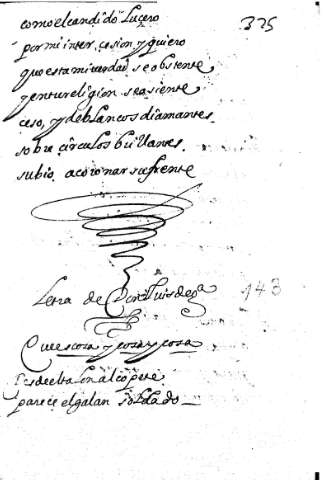 como el candido Luçero 325
por mi inter cesion, y quiero
que esta mi verdad se obstente
y en tu religion se asiente
caso, y de blancos diamantes
sobre circulos brillantes
subio a coronar su frente
Letra de Don Luis de 143
Que es cosa y cosa y cosa
parece el galan soldado